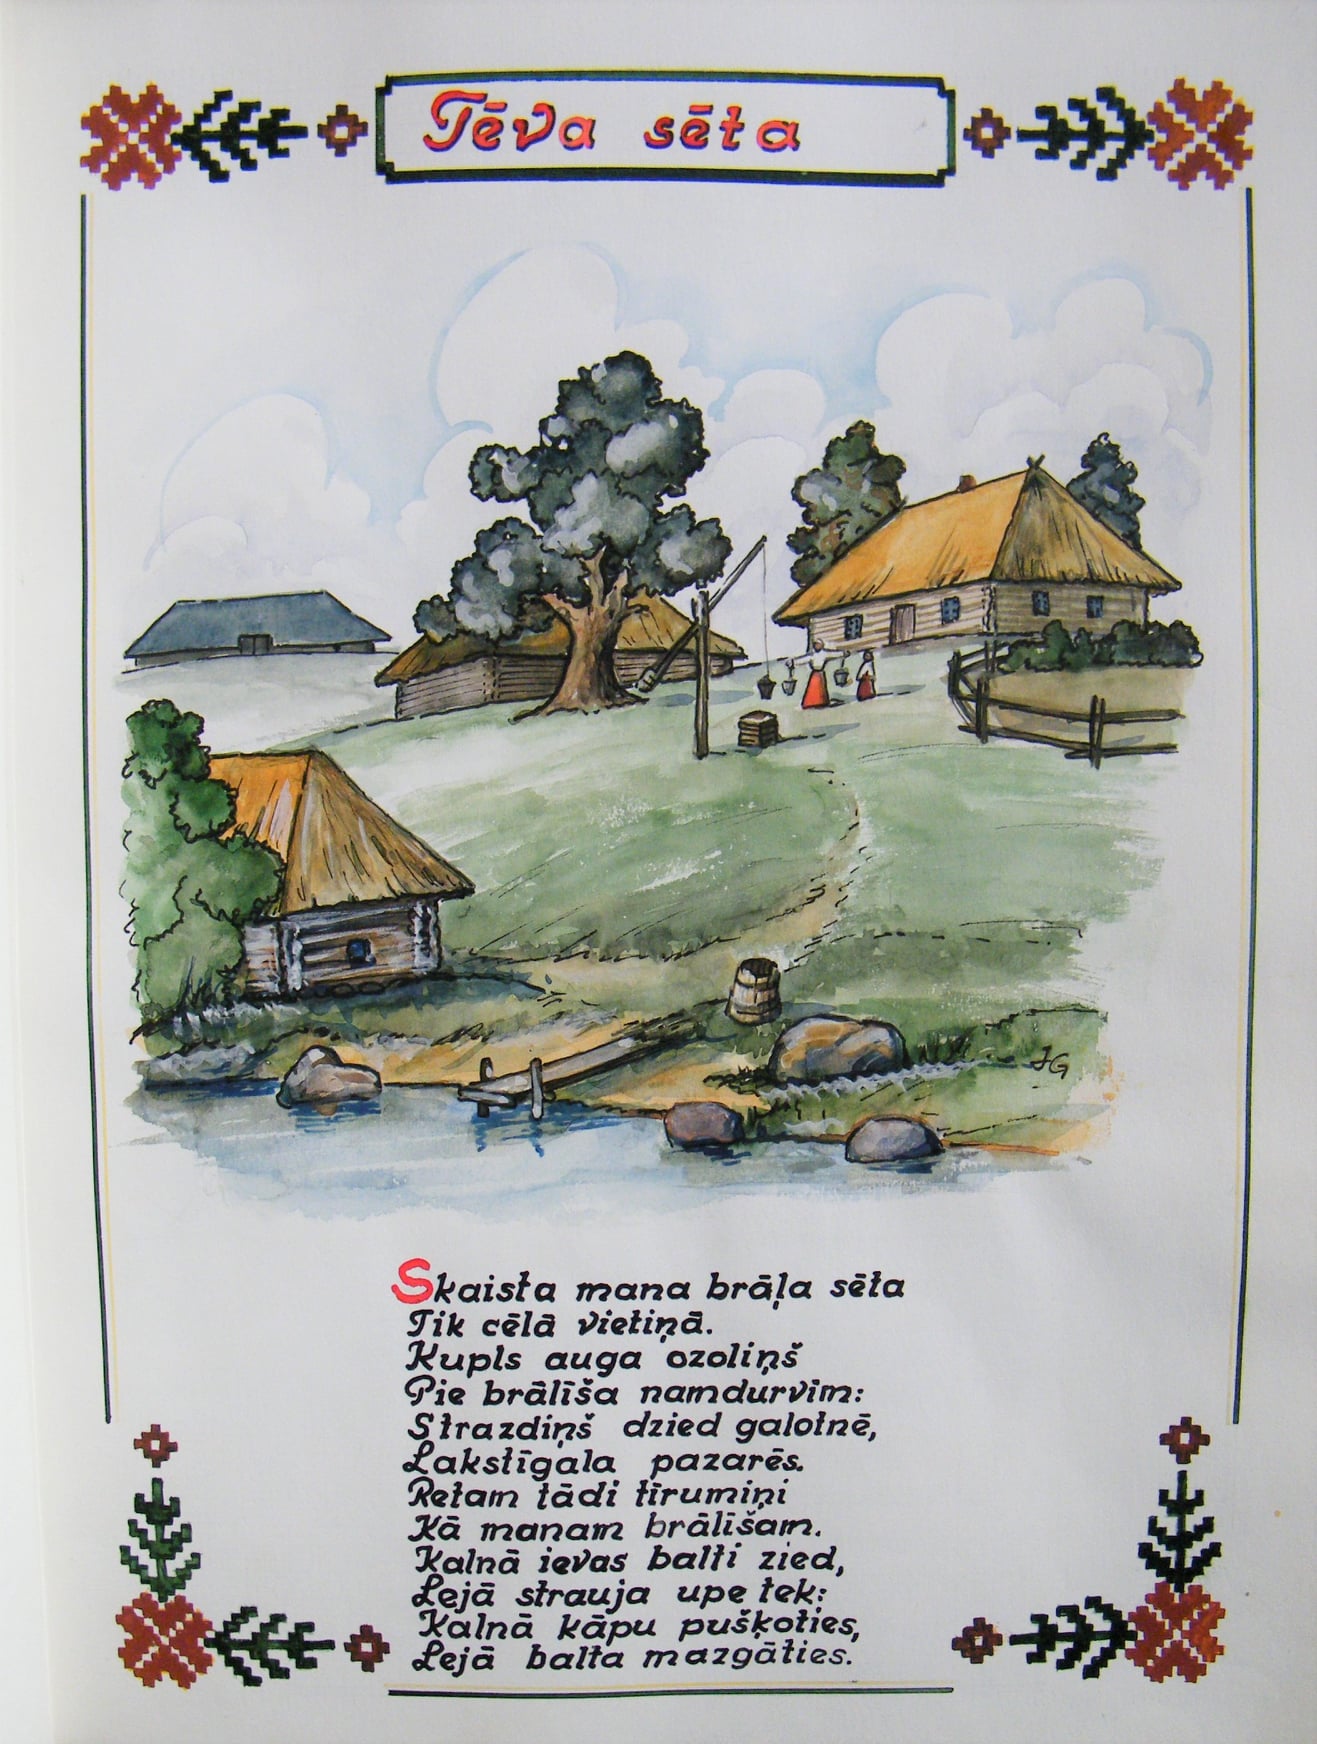 Tēva sēta
JG
Skaista mana brāļa sēta
Tik cēlā vietiņā.
Kupls auga ozoliņš
Pie brālīša namdurvīm:
Strazdiņš dzied galotnē,
Lakstīgala pazarēs.
Retam tādi tīrumiņi
Kā manam brālīšam.
Kalnā ievas balti zied,
Lejā strauja upe tek:
Kalnā kāpu pušķoties,
Lejā balta mazgāties.